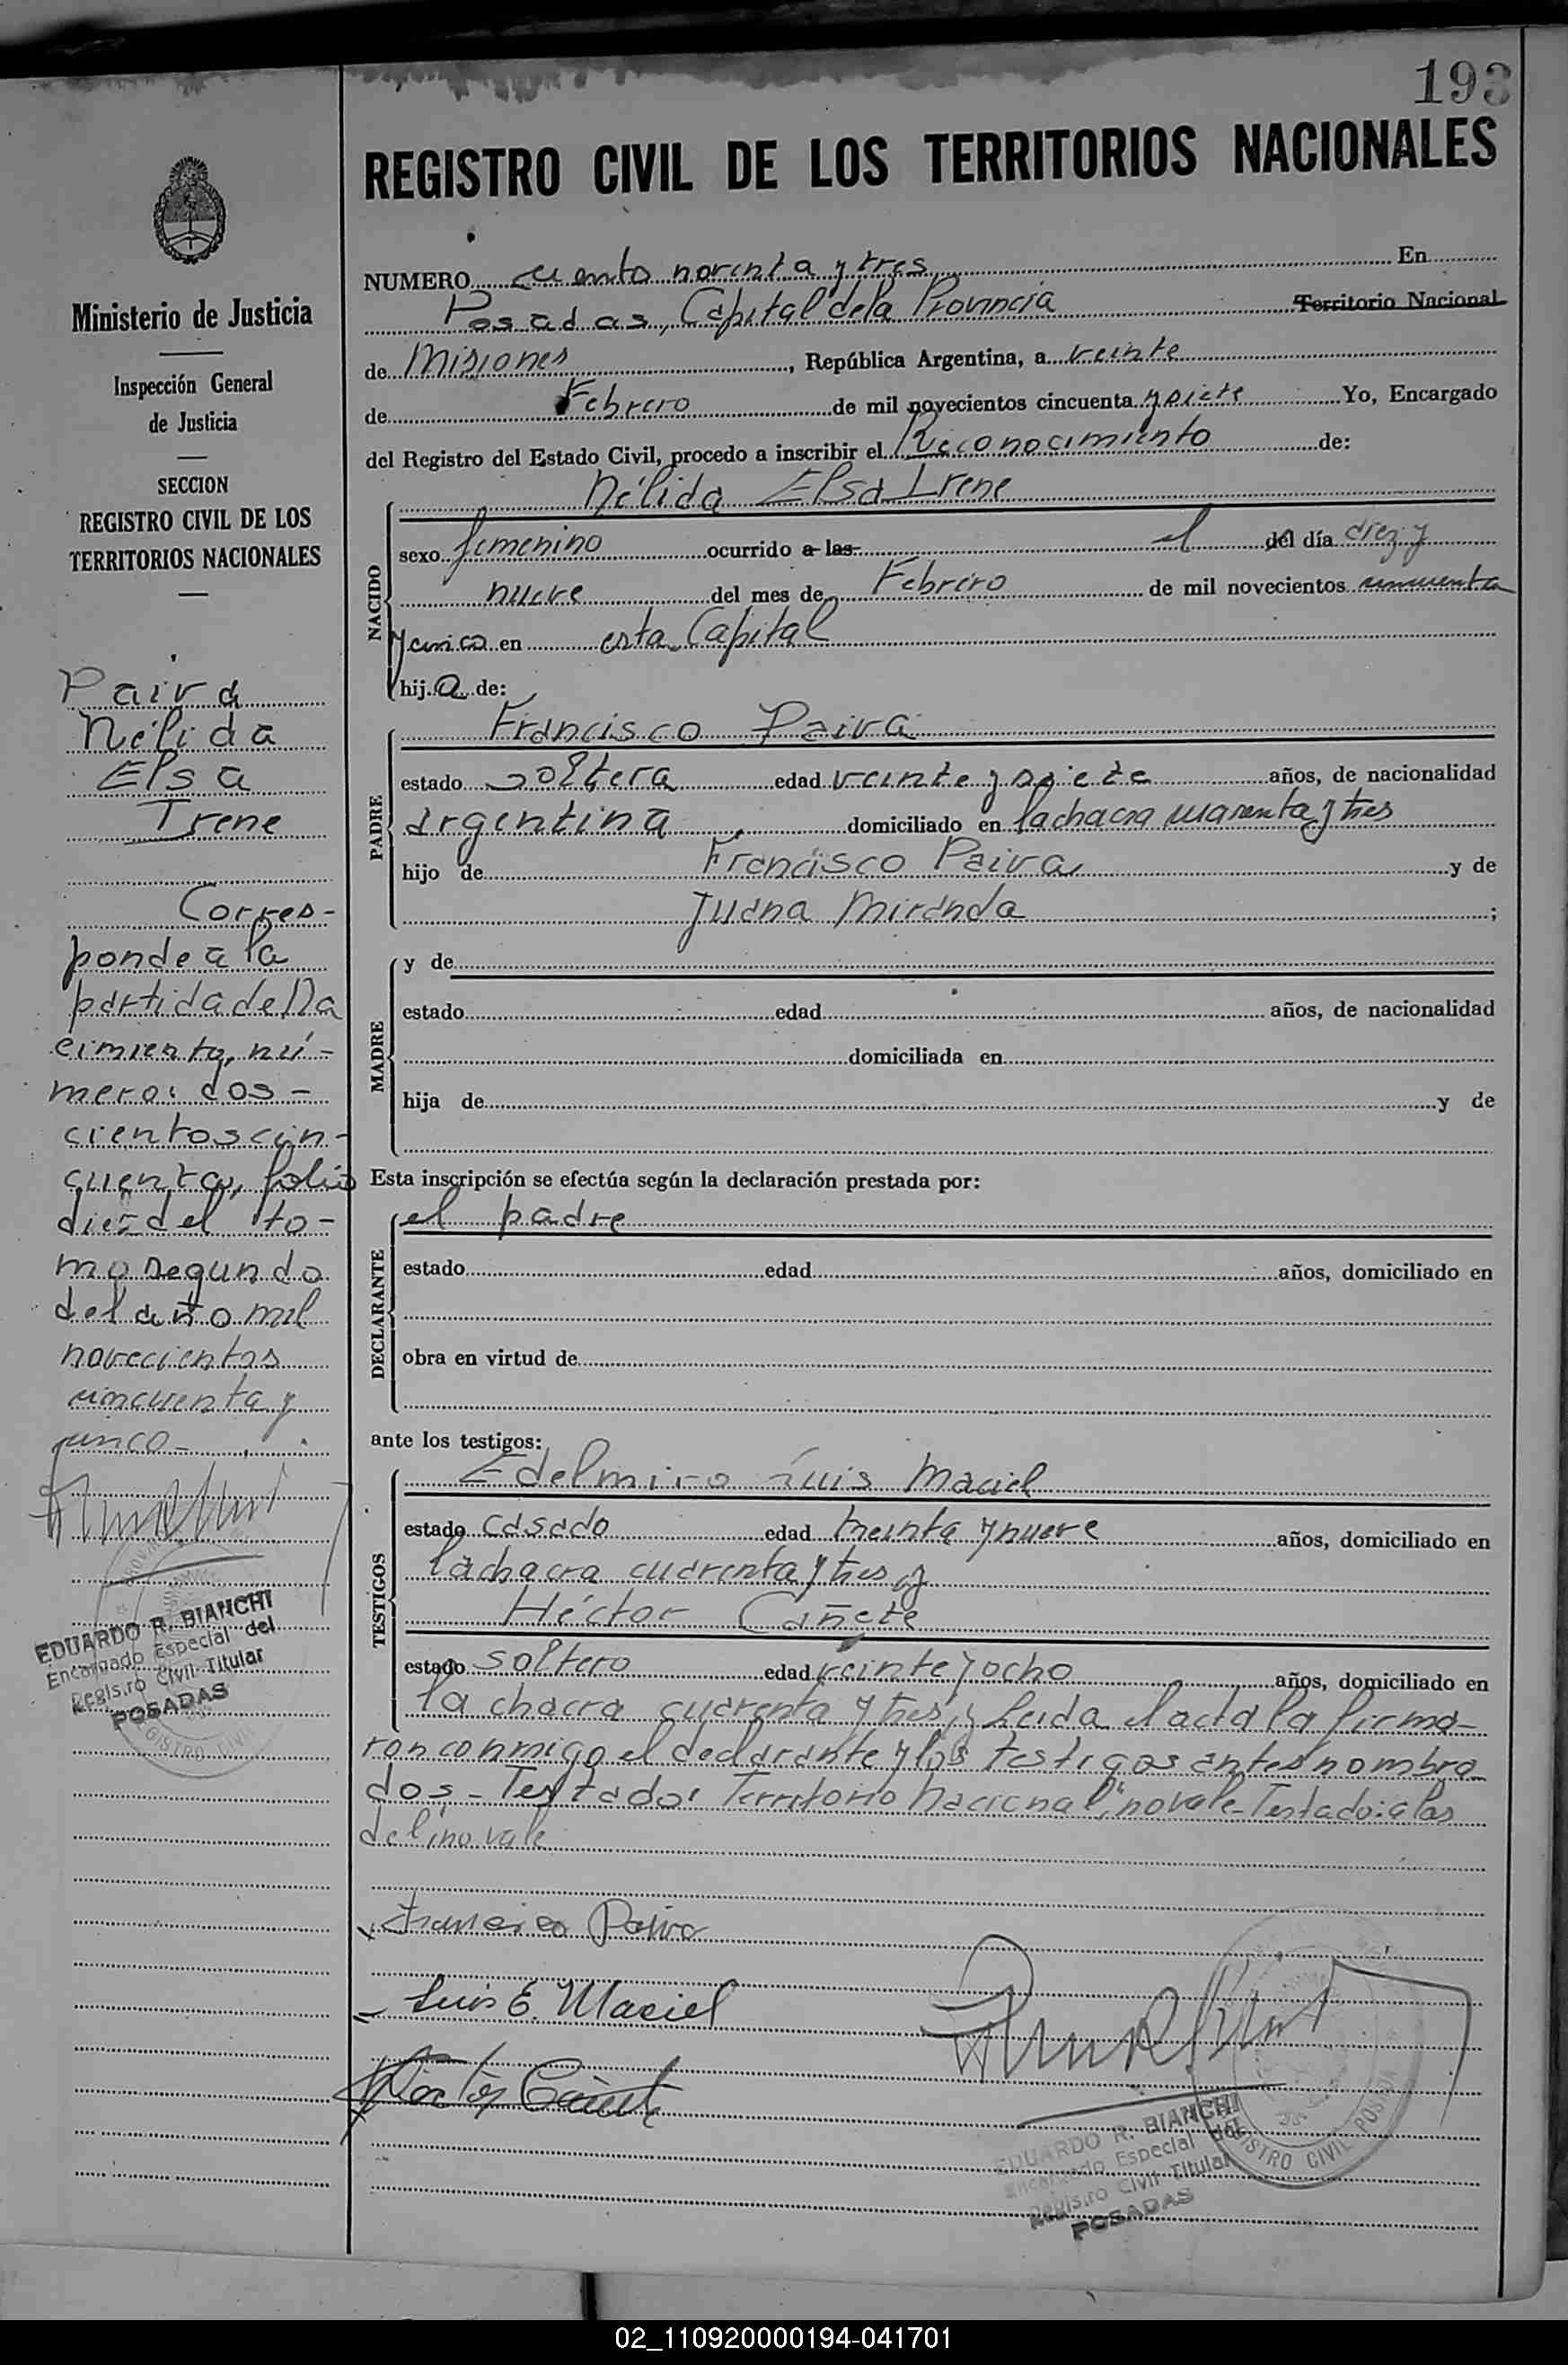 193
REGISTRO CIVIL DE LOS TERRITORIOS NACIONALES
Ministerio de Justicia
Inspección General
de Justicia
SECCION
REGISTRO CIVIL DE LOS
TERRITORIOS NACIONALES
Paiva
Nélida
Elsa
Irene
Corres-
ponde a la
partida de Na
cimiento, nú-
mero: dos-
cientos cin-
cuenta, folio
diez del to-
mo segundo
del año mil
novecientos
cincuenta y
cinco-
EDUARDO R. BIANCHI
Encargado Especial del
Registro Civil Titular
POSADAS
NUMERO ciento noventa y tres En
Posadas, Capital de la Provincia Territorio Nacional
de Misiones, República Argentina, a veinte
de Febrero de mil novecientos cincuenta y siete Yo, Encargado
del Registro del Estado Civil, procedo a inscribir el Reconocimiento de:
Nélida Elsa Irene
NACIDO
sexo femenino ocurrido a las el del día diez y
nueve del mes de Febrero de mil novecientos cincuenta
y cinco en esta Capital
hija de:
PADRE
Francisco Paiva
estado soltera edad veinte y siete años, de nacionalidad
argentina domiciliado en la chacra cuarenta y tres
hijo de Francisco Paiva y de
Juana Miranda ;
MADRE
y de
estado edad años, de nacionalidad
domiciliada en
hija de y de
Esta inscripción se efectúa según la declaración prestada por:
DECLARANTE
el padre
estado edad años, domiciliado en
obra en virtud de
ante los testigos:
TESTIGOS
Edelmiro Luis Maciel
estado casado edad treinta y nueve años, domiciliado en
la chacra cuarenta y tres y
Héctor Cañete
estado soltero edad veinte y ocho años, domiciliado en
la chacra cuarenta y tres, y leida el acta la firma-
ron conmigo el declarante y los testigos antes nombra
dos- Testado: Territorio Nacional, no vale- Testado: a las
del, no vale
Francisco Paiva
Luis E. Maciel
EDUARDO R. BIANCHI
Encargado Especial del
Registro Civil Titular
POSADAS
REGISTRO CIVIL POSADAS
02_110920000194-041701